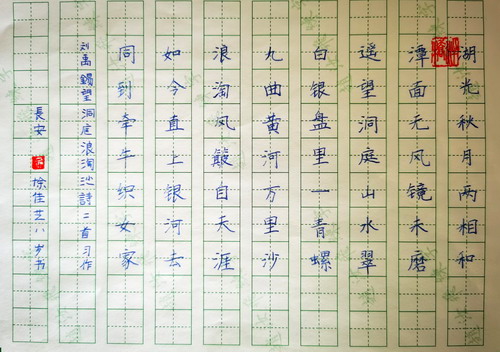 湖光秋月两相和
潭面无风镜未磨
遥望洞庭山水翠
白银盘里一青螺
九曲黄河万里沙
浪淘风簸自天涯
如今直上银河去
同到牵牛织女家
刘禹锡望洞庭浪淘沙詩二首习作
長安 徐佳艺八岁书